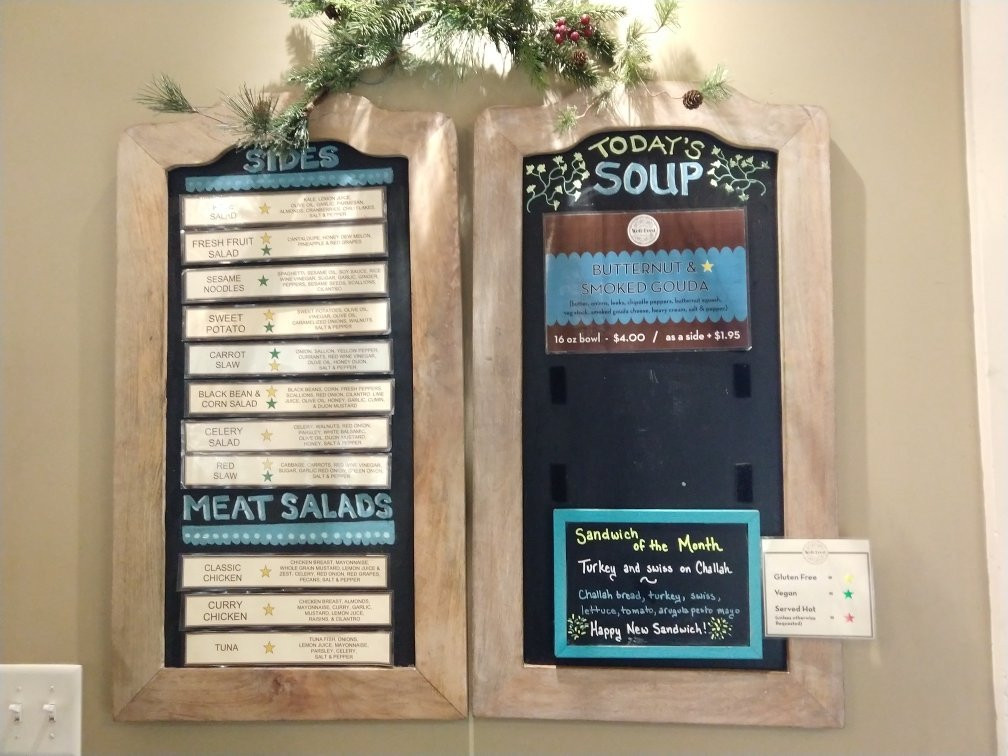 SIDES
SALAD
KALE, LEMON JUICE,
OLIVE OIL, GARLIC, PARMESAN,
ALMONDS, CRANBERRIES, CHILI FLAKES,
SALT & PEPPER
FRESH FRUIT
SALAD
CANTALOUPE, HONEY DEW MELON,
PINEAPPLE & RED GRAPES
SESAME
NOODLES
SPAGHETTI, SESAME OIL, SOY SAUCE, RICE
WINE VINEGAR, SUGAR, GARLIC, GINGER,
PEPPERS, SESAME SEEDS, SCALLIONS,
CILANTRO
SWEET
POTATO
SWEET POTATOES, OLIVE OIL,
VINEGAR, OLIVE OIL,
CARAMELIZED ONIONS, WALNUTS,
SALT & PEPPER
CARROT
SLAW
ONION, SCALLION, YELLOW PEPPER,
CURRANTS, RED WINE VINEGAR,
OLIVE OIL, HONEY DIJON,
SALT & PEPPER
BLACK BEAN &
CORN SALAD
BLACK BEANS, CORN, FRESH PEPPERS,
SCALLIONS, RED ONION, CILANTRO, LIME
JUICE, OLIVE OIL, HONEY, GARLIC, CUMIN,
& DIJON MUSTARD
CELERY
SALAD
CELERY, WALNUTS, RED ONION,
PARSLEY, WHITE BALSAMIC,
OLIVE OIL, DIJON MUSTARD,
HONEY, SALT & PEPPER
RED
SLAW
CABBAGE, CARROTS, RED WINE VINEGAR,
SUGAR, GARLIC RED ONION, GREEN ONION,
SALT & PEPPER
MEAT SALADS
CLASSIC
CHICKEN
CHICKEN BREAST, MAYONNAISE,
WHOLE GRAIN MUSTARD, LEMON JUICE &
ZEST, CELERY, RED ONION, RED GRAPES,
PECANS, SALT & PEPPER
CURRY
CHICKEN
CHICKEN BREAST, ALMONDS,
MAYONNAISE, CURRY, GARLIC,
MUSTARD, LEMON JUICE,
RAISINS, & CILANTRO
TUNA
TUNA FISH, ONIONS,
LEMON JUICE, MAYONNAISE,
PARSLEY, CELERY,
SALT & PEPPER
TODAY'S
SOUP
BUTTERNUT &
SMOKED GOUDA
(butter, onions, leeks, chipotle peppers, butternut squash,
veg stock, smoked gouda cheese, heavy cream, salt & pepper)
16 oz bowl - $4.00 / as a side + $1.95
Sandwich
of the Month
Turkey and swiss on Challah
~
Challah bread, turkey, swiss,
lettuce, tomato, arugula pesto mayo
Happy New Sandwich!
Gluten Free =
Vegan =
Served Hot =
(unless otherwise
Requested)